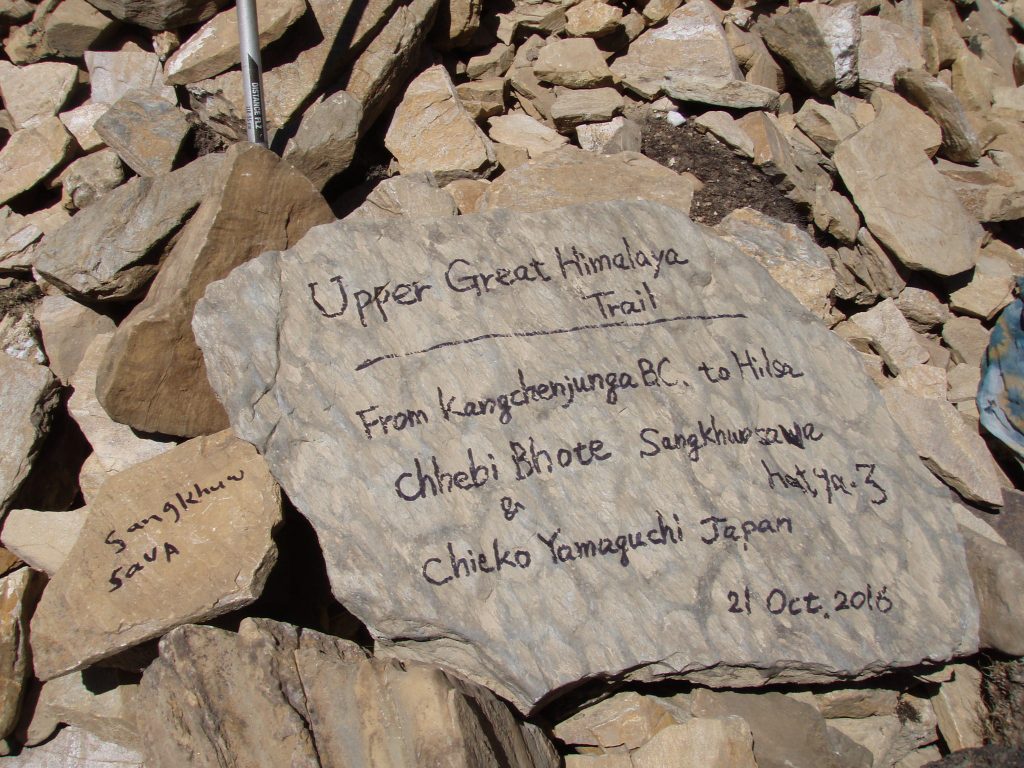 DISTANCE FL.2
Upper Great Himalaya
Trail
From Kangchenjunga B.C. to Hilsa
Chhebi Bhote Sangkhuwasawa
hatya-3
&
Chieko Yamaguchi Japan
21 Oct. 2016
Sangkhuw
SavA